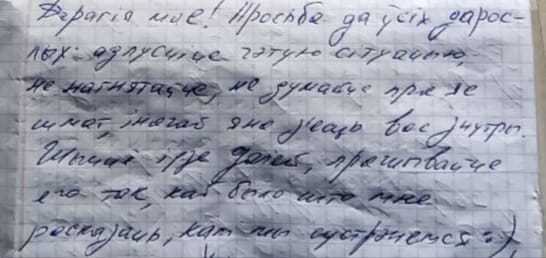 Дарагія мае! Просьба да ўсіх дарос-
лых: адпусціце гэтую сітуацыю,
не нагнятайце, не думайце пра яе
шмат, іначай яна з'есць вас знутры.
Жыццё ідзе далей, пражывайце
яго так, каб было што мне
расказаць, калі мы сустрэнемся :),